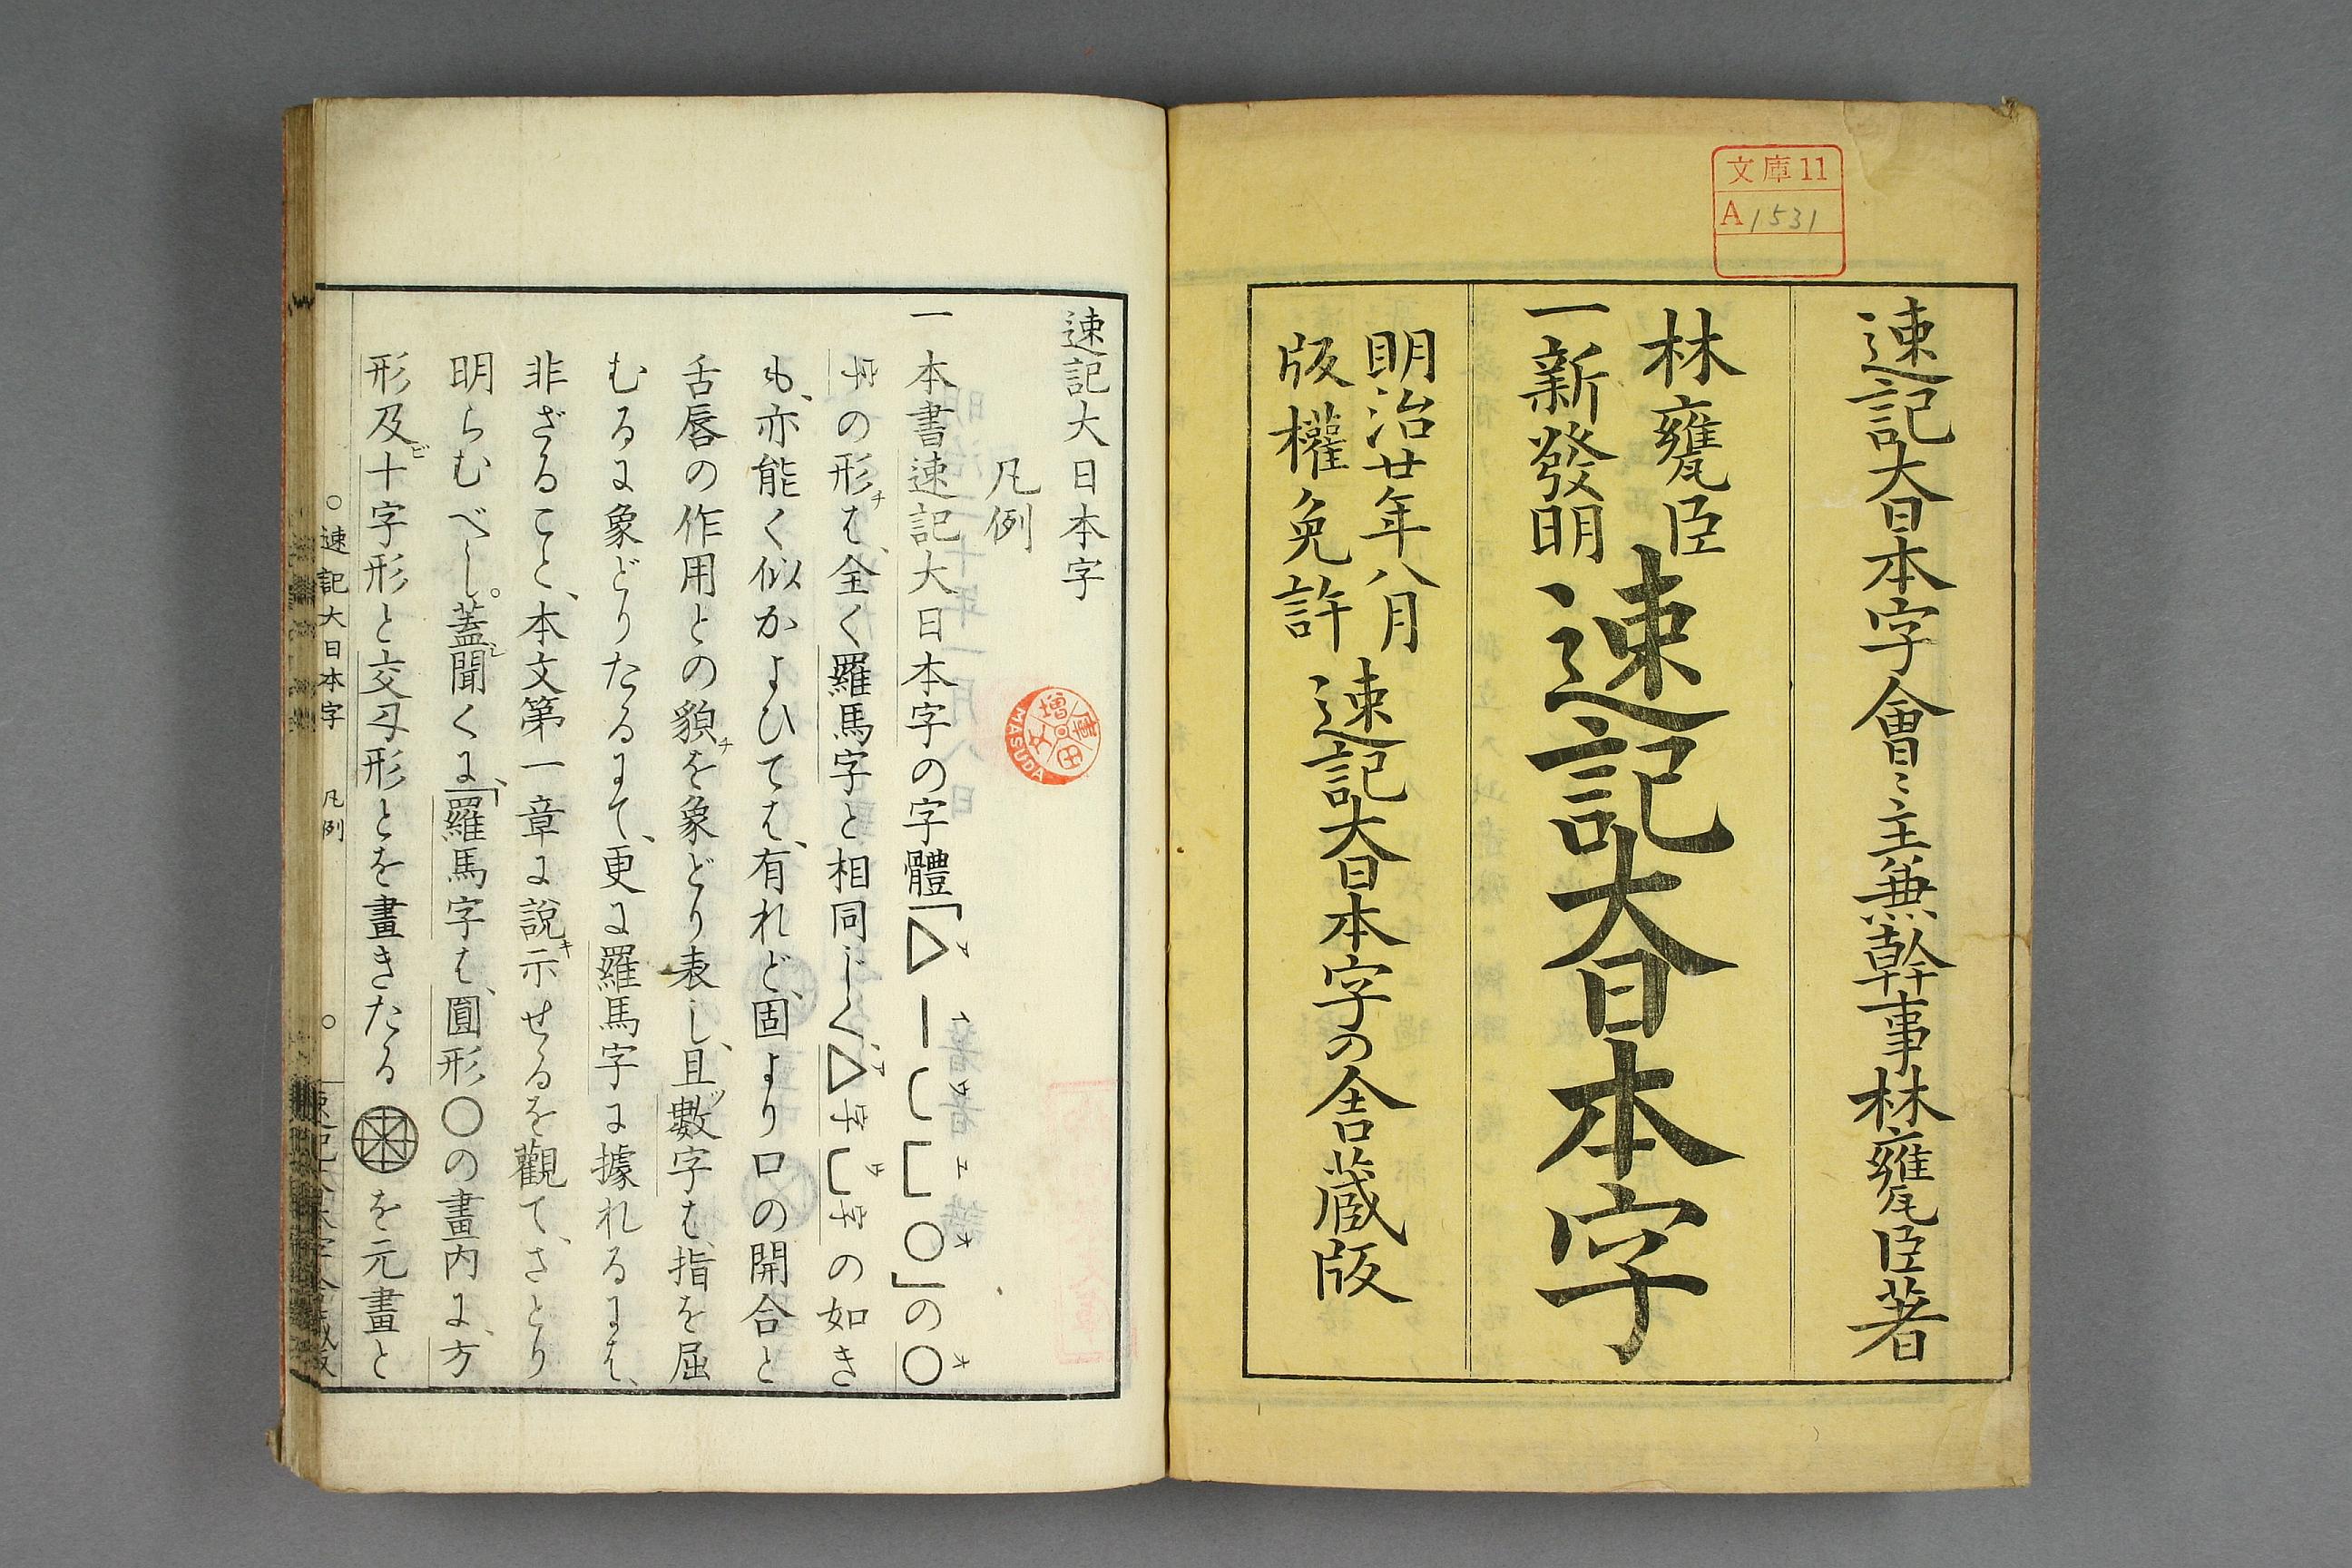 文庫11
A 1531
速記大日本字會々主兼幹事林甕臣著
林甕臣
一新發明
速記大日本字
明治廿年八月
版權免許
速記大日本字の舍蔵版
速記大日本字
凡例
増田文庫
MASUDA
一本書速記大日本字の字體「▷｜ㄈ匚〇」の〇
字の形は、全く羅馬字と相同じく、▷字匚字の如き
も、亦能く似かよひては、有れど、固より口の開合と
舌唇の作用との貌を象どり表し、且數字は、指を屈
むるに象どりたるにて、更に羅馬字に據れるには、
非ざること、本文第一章に説示せるを觀て、さとり
明らむべし。蓋聞くに、「羅馬字は、圓形〇の畫内に、方
形及十字形と交叉形とを畫きたるを元畫と
〇速記大日本字 凡例 〇